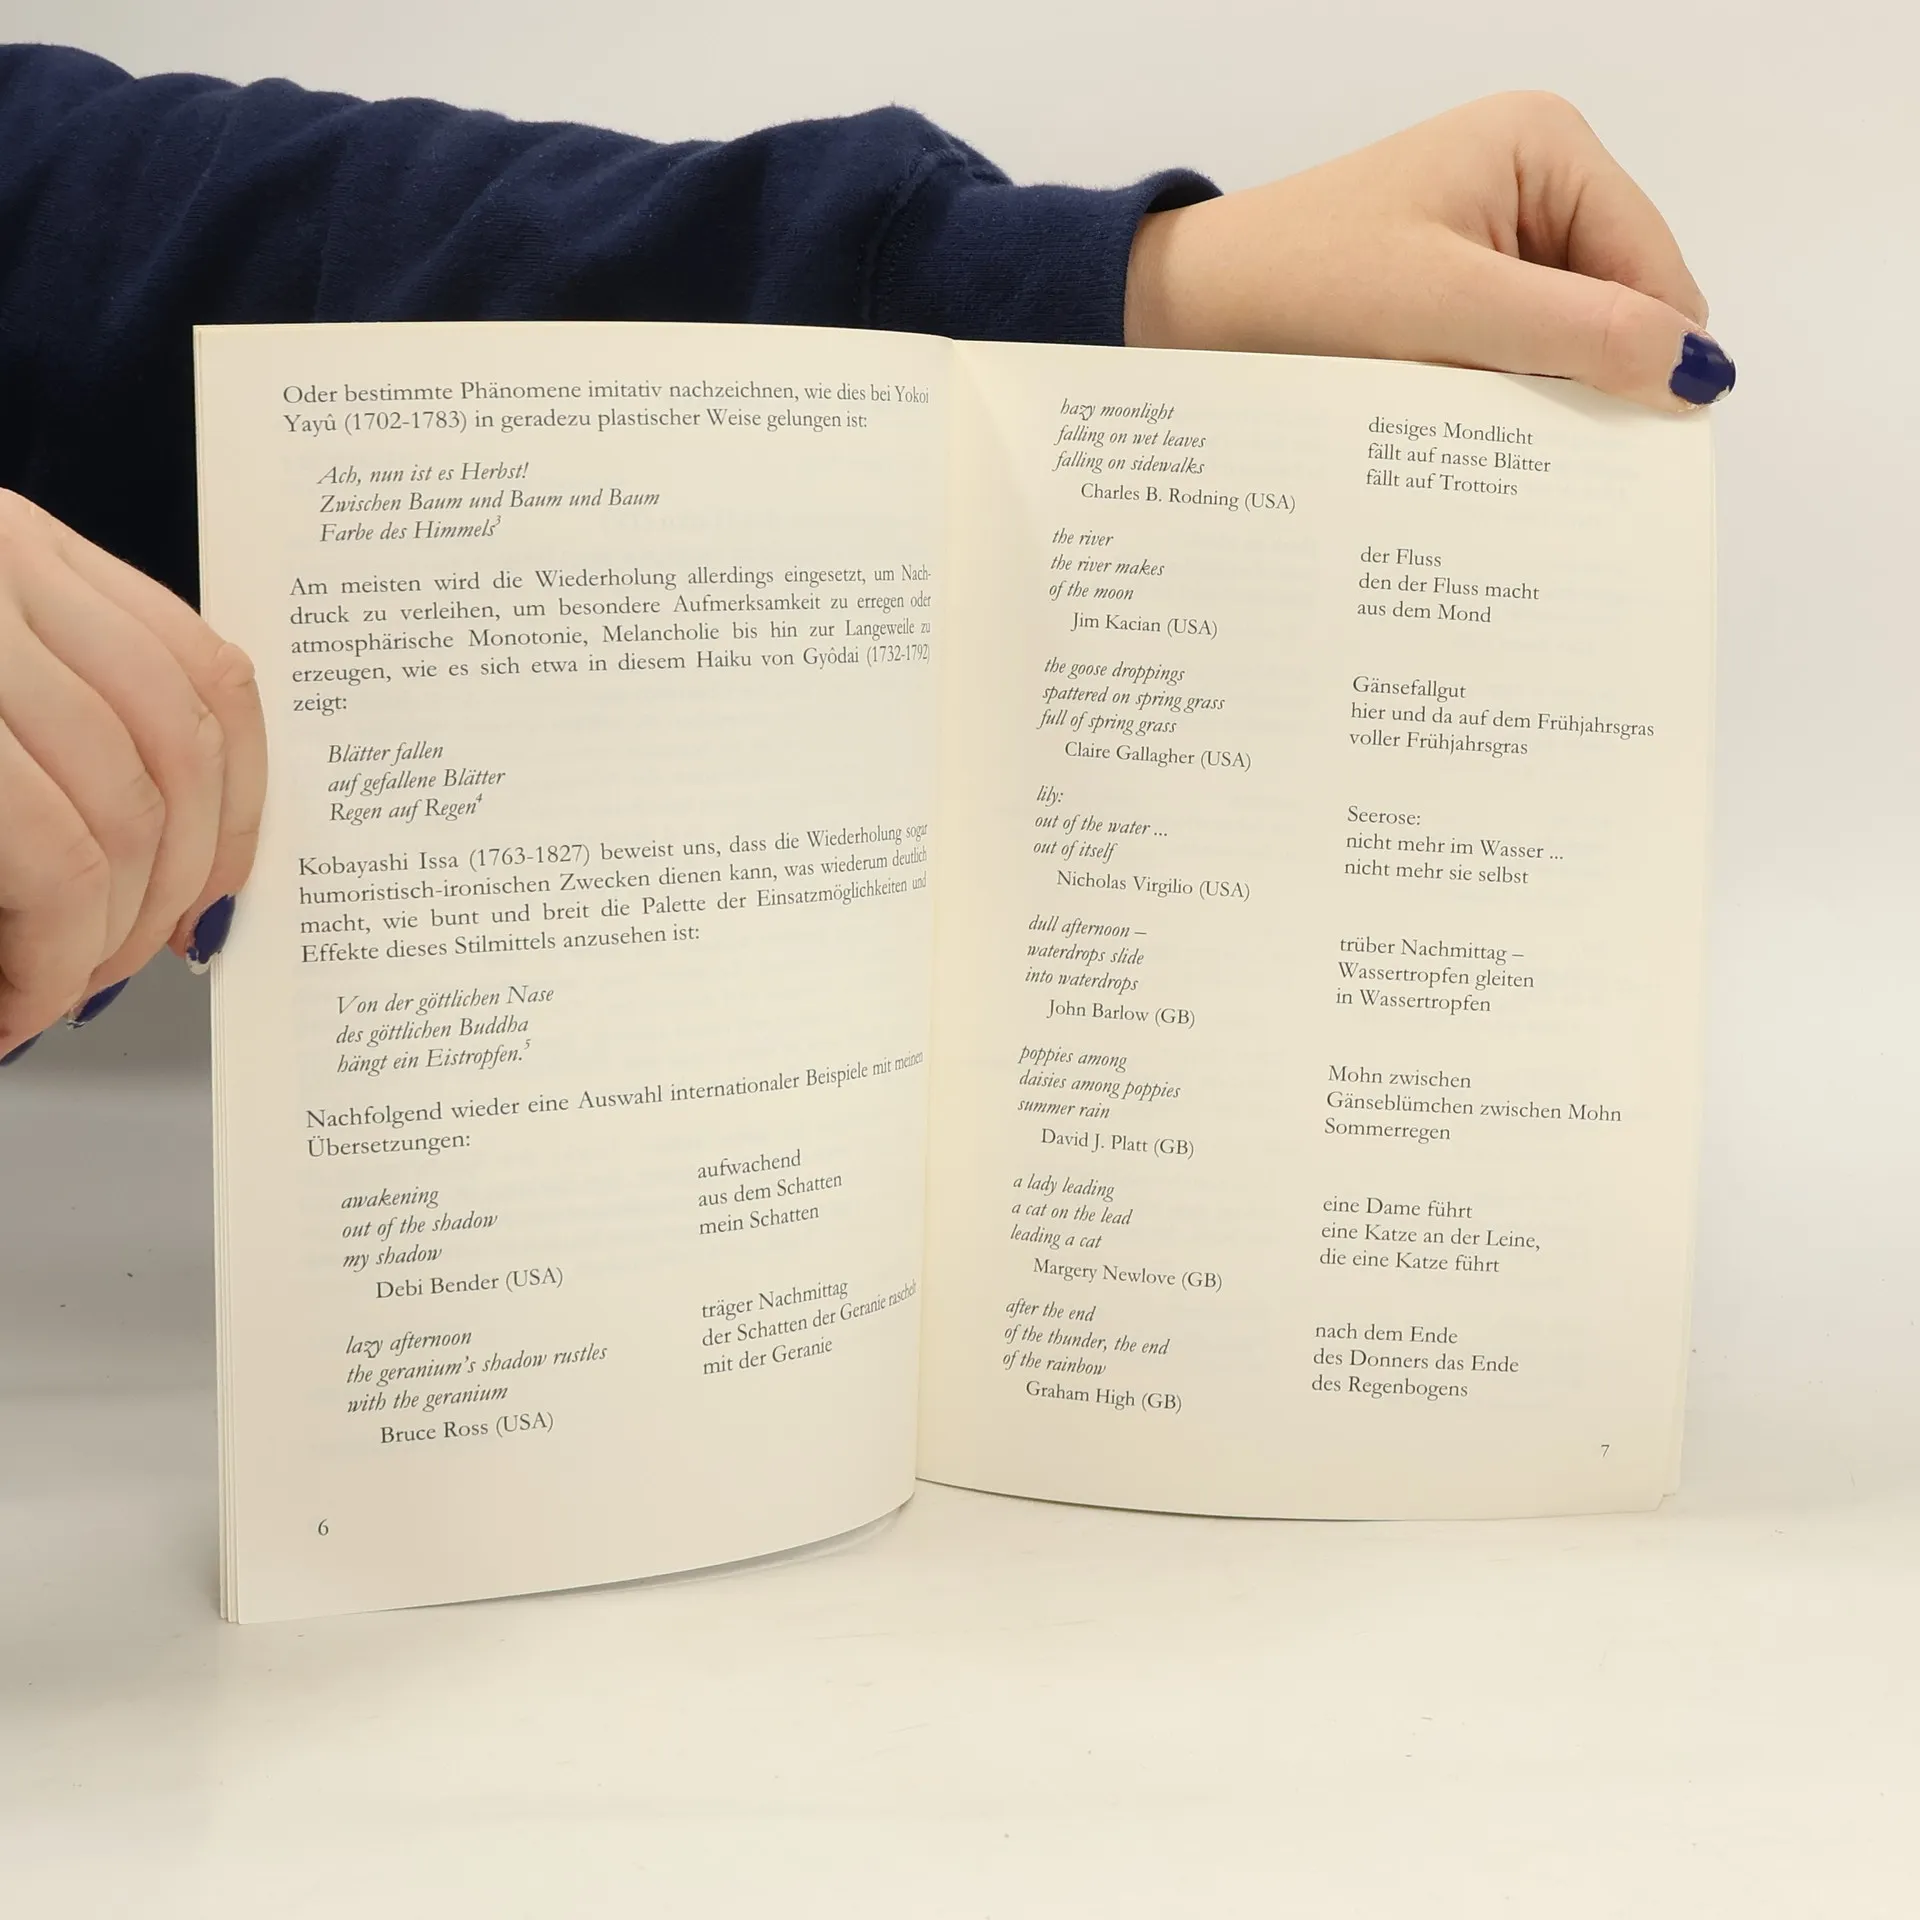 Oder bestimmte Phänomene imitativ nachzeichnen, wie dies bei Yokoi
Yayû (1702-1783) in geradezu plastischer Weise gelungen ist:
Ach, nun ist es Herbst!
Zwischen Baum und Baum und Baum
Farbe des Himmels³
Am meisten wird die Wiederholung allerdings eingesetzt, um Nach-
druck zu verleihen, um besondere Aufmerksamkeit zu erregen oder
atmosphärische Monotonie, Melancholie bis hin zur Langeweile zu
erzeugen, wie es sich etwa in diesem Haiku von Gyôdai (1732-1792)
zeigt:
Blätter fallen
auf gefallene Blätter
Regen auf Regen⁴
Kobayashi Issa (1763-1827) beweist uns, dass die Wiederholung sogar
humoristisch-ironischen Zwecken dienen kann, was wiederum deutlich
macht, wie bunt und breit die Palette der Einsatzmöglichkeiten und
Effekte dieses Stilmittels anzusehen ist:
Von der göttlichen Nase
des göttlichen Buddha
hängt ein Eistropfen.⁵
Nachfolgend wieder eine Auswahl internationaler Beispiele mit meinen
Übersetzungen:
awakening
out of the shadow
my shadow
Debi Bender (USA)
aufwachend
aus dem Schatten
mein Schatten
lazy afternoon
the geranium's shadow rustles
with the geranium
Bruce Ross (USA)
träger Nachmittag
der Schatten der Geranie raschelt
mit der Geranie
6
hazy moonlight
falling on wet leaves
falling on sidewalks
Charles B. Rodning (USA)
diesiges Mondlicht
fällt auf nasse Blätter
fällt auf Trottoirs
the river
the river makes
of the moon
Jim Kacian (USA)
der Fluss
den der Fluss macht
aus dem Mond
the goose droppings
spattered on spring grass
full of spring grass
Claire Gallagher (USA)
Gänsefallgut
hier und da auf dem Frühjahrsgras
voller Frühjahrsgras
lily:
out of the water ...
out of itself
Nicholas Virgilio (USA)
Seerose:
nicht mehr im Wasser ...
nicht mehr sie selbst
dull afternoon –
waterdrops slide
into waterdrops
John Barlow (GB)
trüber Nachmittag –
Wassertropfen gleiten
in Wassertropfen
poppies among
daisies among poppies
summer rain
David J. Platt (GB)
Mohn zwischen
Gänseblümchen zwischen Mohn
Sommerregen
a lady leading
a cat on the lead
leading a cat
Margery Newlove (GB)
eine Dame führt
eine Katze an der Leine,
die eine Katze führt
after the end
of the thunder, the end
of the rainbow
Graham High (GB)
nach dem Ende
des Donners das Ende
des Regenbogens
7